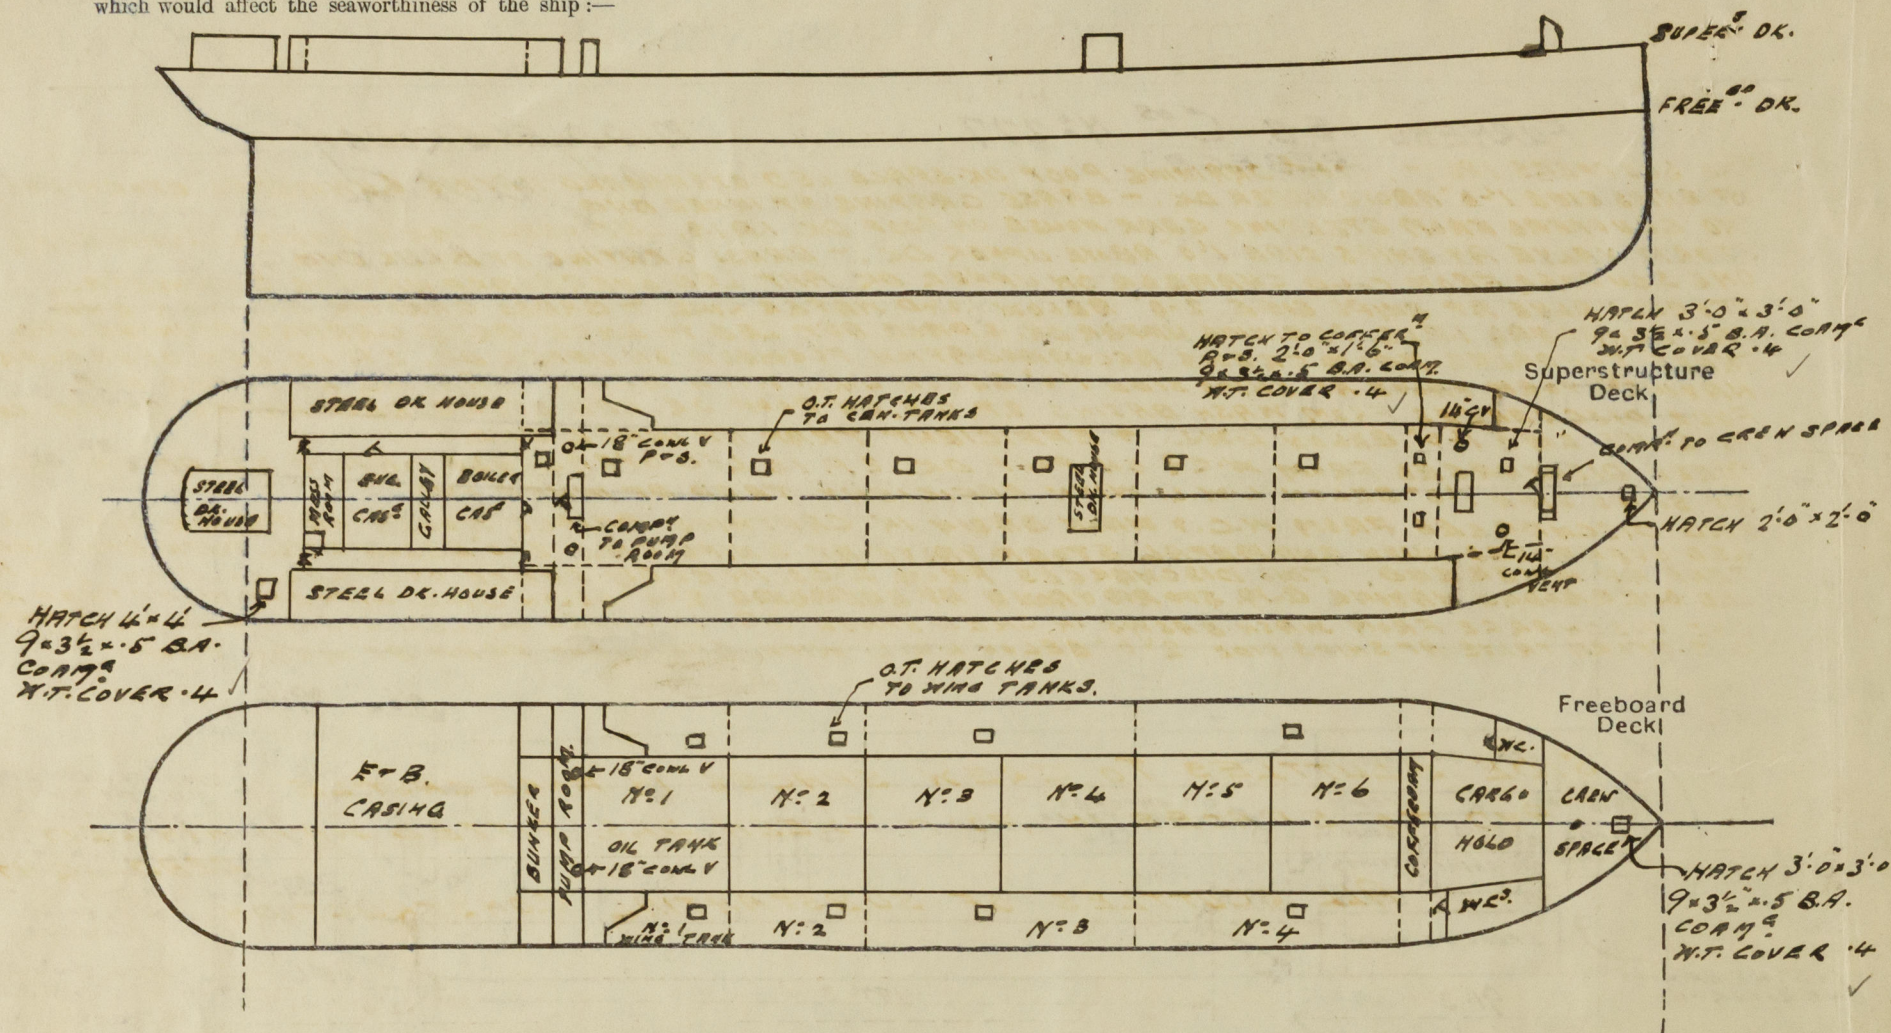 which would affect the seaworthiness of the ship :—
SUPERS. DK.
FREEBD. DK.
HATCH 3'·0" × 3'·0"
9 × 3½ × ·5 B.A. COAMG
W.T. COVER ·4
HATCH TO COFFERM
P&S. 2'·0" × 1'·6"
9 × 3½ × ·5 B.A. COAM.
W.T. COVER ·4
Superstructure
Deck
STEEL DK HOUSE
O.T. HATCHES
TO CEN. TANKS
14" CV
18" COWL V
P&S.
COMPN TO CREW SPACE
STEEL
DK.
HOUSE
MESS
ROOM
ENG
CASG
GALLEY
BOILER
CASG
STEEL
DK. HOUSE
COMPN
TO PUMP
ROOM
HATCH 2'·0" × 2'·0"
14"
COWL
VENT
STEEL DK. HOUSE
HATCH 4' × 4'
9 × 3½ × ·5 B.A.
COAMG
W.T. COVER ·4
O.T. HATCHES
TO WING TANKS.
Freeboard
Deck
E & B.
CASING
BUNKER
PUMP ROOM
18" COWL V
No 1
No 2
No 3
No 4
No 5
No 6
OIL TANK
18" COWL V
COFFERDAM
WC.
CARGO
HOLD
CREW
SPACE
No 1
WING TANK
No 2
No 3
No 4
WCS.
HATCH 3'·0 × 3'·0
9 × 3½" × ·5 B.A.
COAMG
W.T. COVER ·4